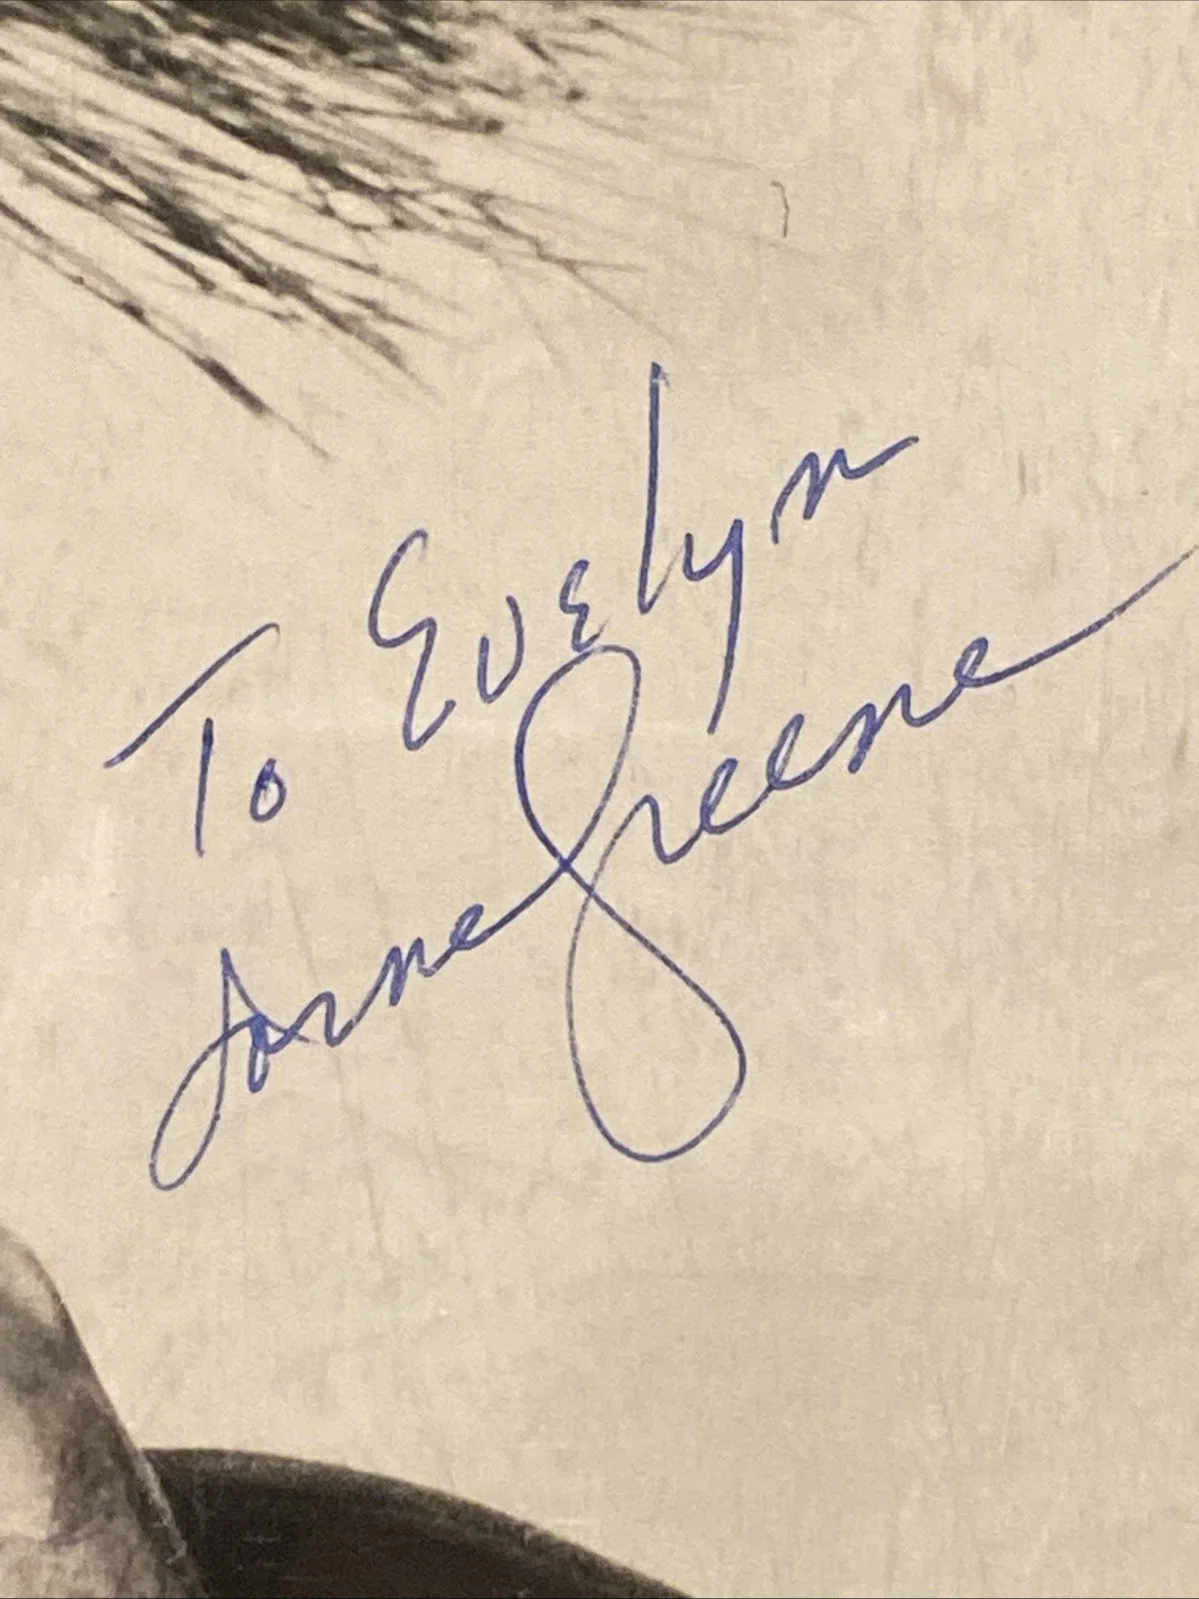 To Evelyn
Lorne Greene